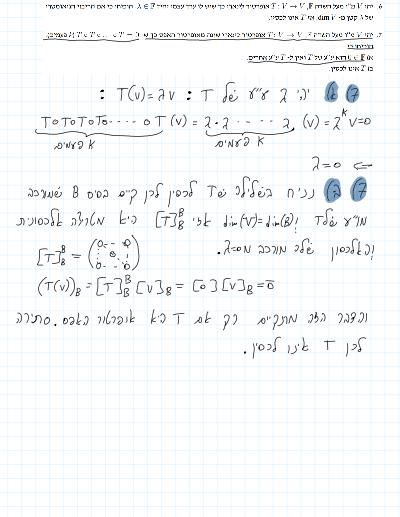 6. יהי V מ"ו מעל השדה F, T : V → V אופרטור לינארי כך שיש לו ערך עצמי יחיד λ ∈ F. הוכיחו כי אם הריבוי הגיאומטרי
של λ קטן מ- dim V, אזי T אינו לכסין.
7. יהי V מ"ו מעל השדה F, T : V → V אופרטור לינארי שונה מאופרטור האפס כך ש- T ∘ T ∘ ... ∘ T = 0 (k פעמים).
הוכיחו כי
א) 0 ∈ F הוא ע"ע של T ואין ל- T ע"ע אחרים.
ב) T אינו לכסין.
7) א) יהי λ ע"ע של T : T(v) = λv :
T∘T∘T∘T∘·····∘T(v) = λ·λ·····λ (v) = λ^k v = 0
k פעמים k פעמים
⇐ λ = 0
7) ב) נניח בשלילה שT לכסין לכן קיים בסיס B שמורכב
מו"ע שלT ו dim(V)=dim(B) אזי [T]_B^B היא מטריצה אלכסונית
והאלכסון שלה מורכב מ λ=0.
[T]_B^B = (0 ·· 0 : 0 : 0 ·· 0)
(T(v))_B = [T]_B^B [v]_B = [0][v]_B = 0
והדבר הזה מתקיים רק אם T היא אופרטור האפס. סתירה
לכן T אינו לכסין.